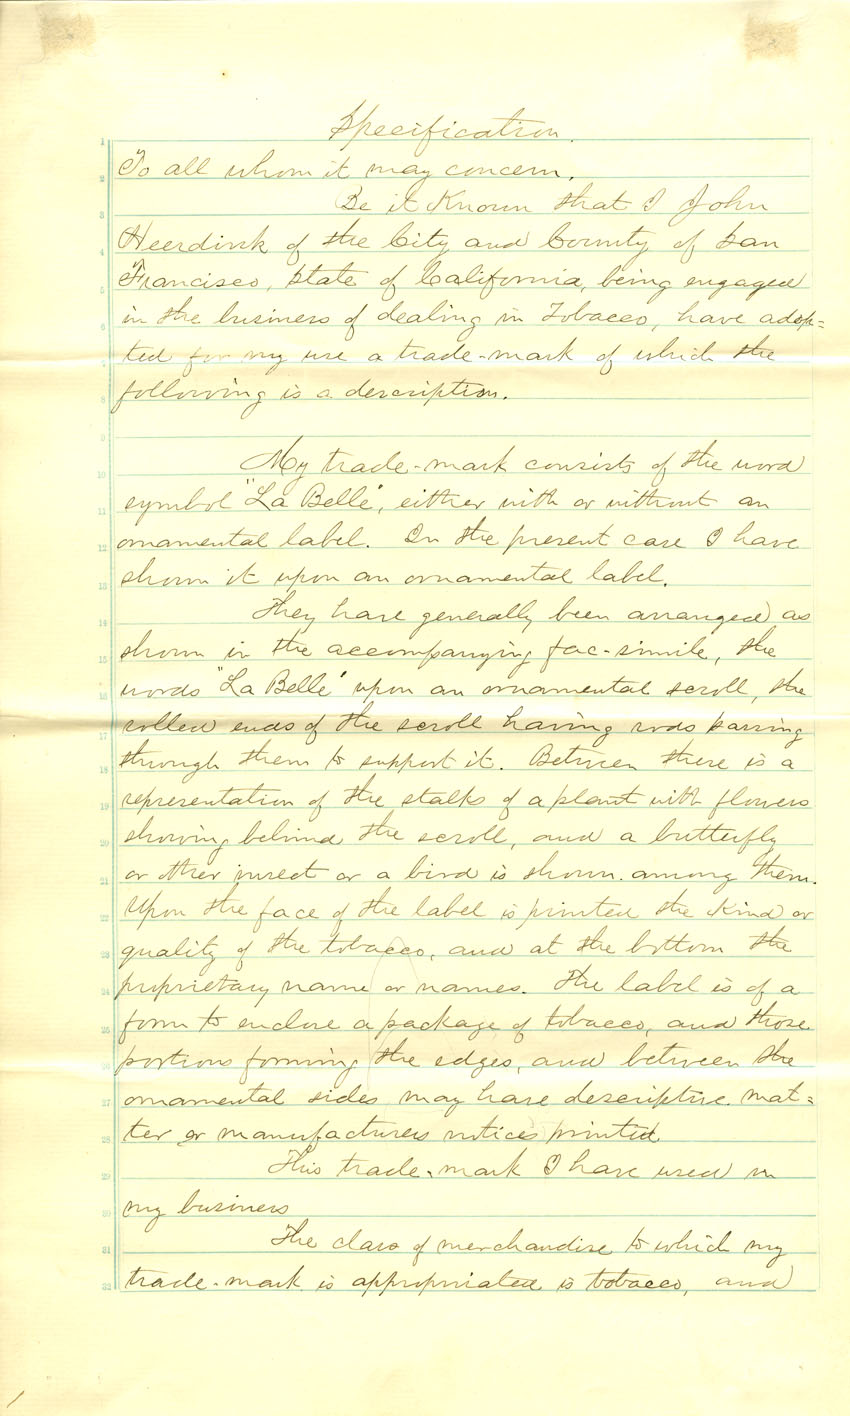 Specification.
To all whom it may concern.
Be it Known that I John
Heerdink of the City and County of San
Francisco, State of California, being engaged
in the business of dealing in Tobacco, have adop=
ted for my use a trade-mark of which the
following is a description.
My trade-mark consists of the word
symbol "La Belle", either with or without an
ornamental label. In the present case I have
shown it upon an ornamental label.
They have generally been arranged as
shown in the accompanying fac-simile, the
words "La Belle" upon an ornamental scroll, the
rolled ends of the scroll having rods passing
through them to support it. Between there is a
representation of the stalks of a plant with flowers
showing behind the scroll, and a butterfly
or other insect or a bird is shown among them.
Upon the face of the label is printed the kind or
quality of the tobacco, and at the bottom the
proprietary name or names. The label is of a
form to enclose a package of tobacco, and those
portions forming the edges, and between the
ornamental sides may have descriptive mat=
ter or manufacturers notices printed
This trade-mark I have used in
my business
The class of merchandise to which my
trade-mark is appropriated is tobacco, and
1
2
3
4
5
6
7
8
9
10
11
12
13
14
15
16
17
18
19
20
21
22
23
24
25
26
27
28
29
30
31
32